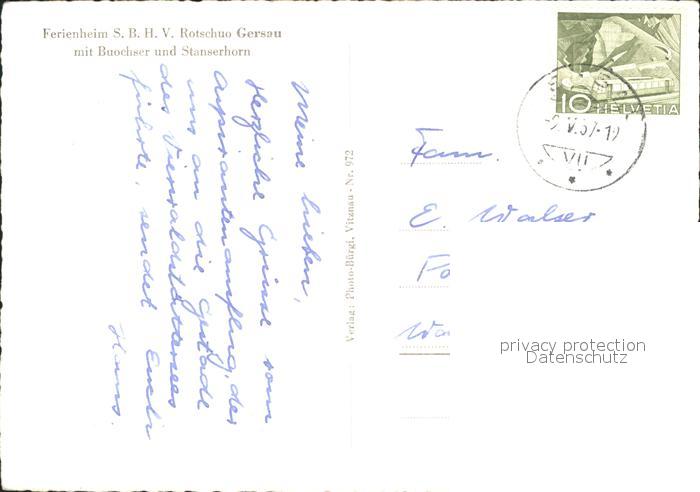 Ferienheim S. B. H. V. Rotschuo Gersau
mit Buochser und Stanserhorn
Meine lieben,
Herzliche Grüsse vom
Aspirantenausflug, der
uns an die Gestade
des Vierwaldstättersees
führte, sendet Euch
Hans.
Verlag: Photo-Bürgi, Vitznau - Nr. 972
10 HELVETIA
-9.V.57-19
VII
Fam.
E. Walser
Fo
Wa
privacy protection
Datenschutz